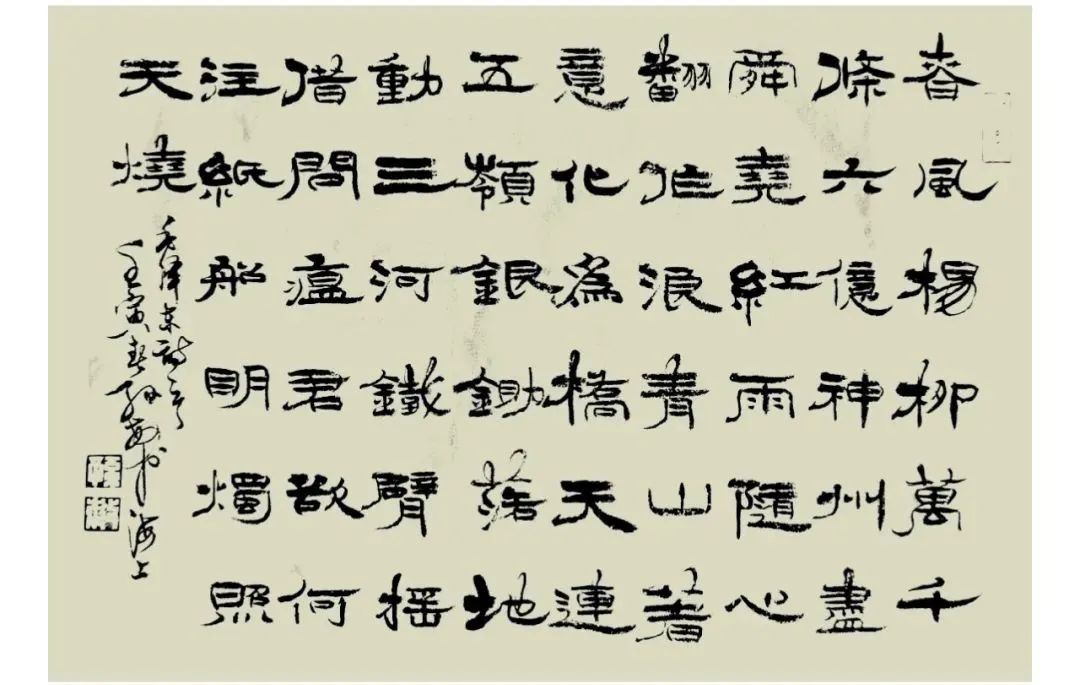 春風楊柳萬千
條六億神州盡
舜堯紅雨隨心
翻作浪青山著
意化為橋天連
五嶺銀鋤落地
動三河鐵臂搖
借問瘟君欲何
注紙船明燭照
天燒
毛澤東詩
壬寅春 海上